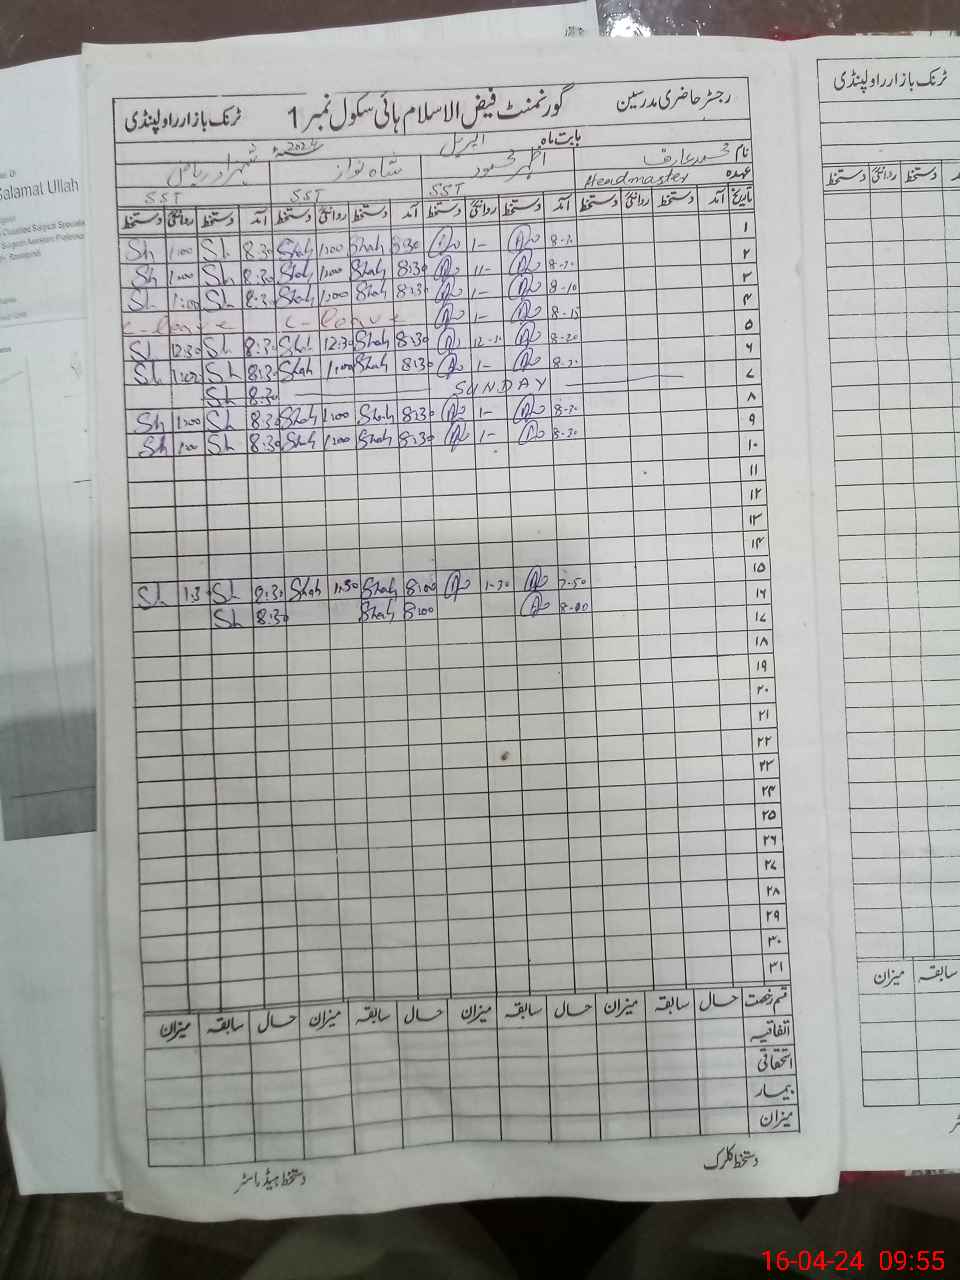 رجسٹر حاضری مدرسین گورنمنٹ فیض الاسلام ہائی سکول نمبر 1 ٹرنک بازار راولپنڈی
بابت ماہ اپریل 2024
نام محمد عارف اظہر محمود شاہ نواز شہزاد ریاض
عہدہ Headmaster SST SST SST
تاریخ آمد دستخط روانگی دستخط آمد دستخط روانگی دستخط آمد دستخط روانگی دستخط آمد دستخط روانگی دستخط
۱ 8-30 1- 8:30 Shah 1:00 Shah 8:30 Sh 1:00 Sh
۲ 8-30 11- 8:30 Shah 1:00 Shah 8:30 Sh 1:00 Sh
۳ 8-10 1- 8:30 Shah 1:00 Shah 8:30 Sh 1:00 Sh
۴ 8-15 1- C-leave C-leave
۵ 8-20 8:30 Shah 12:30 Shah 8:30 Sh 12:30 Sh
۶ 8-30 1- 8:30 Shah 1:00 Shah 8:30 Sh 1:00 Sh
۷ SUNDAY 8:30 Sh
۸ 8-30 1- 8:30 Shah 1:00 Shah 8:30 Sh 1:00 Sh
۹ 8-30 1- 8:30 Shah 1:00 Shah 8:30 Sh 1:00 Sh
۱۰
۱۱
۱۲
۱۳
۱۴
۱۵ 7-50 1-30 8:00 Shah 1:30 Shah 8:30 Sh 1:3 Sh
۱۶ 8-00 8:00 Shah 8:30 Sh
۱۷
۱۸
۱۹
۲۰
۲۱
۲۲
۲۳
۲۴
۲۵
۲۶
۲۷
۲۸
۲۹
۳۰
۳۱
قسم رخصت حال سابقہ میزان حال سابقہ میزان حال سابقہ میزان حال سابقہ میزان
اتفاقیہ
استحقاقی
بیمار
میزان
دستخط کلرک دستخط ہیڈ ماسٹر
ٹرنک بازار راولپنڈی
دستخط روانگی دستخط
سابقہ میزان
Salamat Ullah
16-04-24 09:55